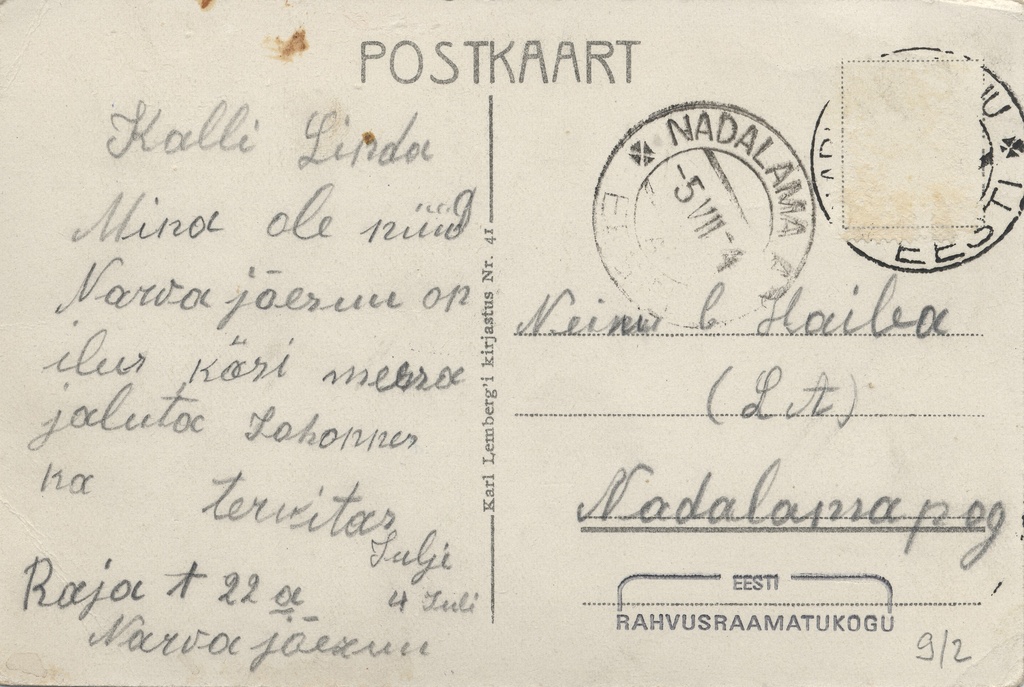 POSTKAART
Kalli Linda
Mina ole nüüd
Narva jõesuu on
ilus käsi meesa
jaluta Johannes
ka tervitas
Julje
Raja t 22 a 4 Juli
Narva jõesuu
Karl Lemberg'i kirjastus Nr. 41
NADALAMA
-5 VII -4
EESTI
Haiba
(L A)
Nadalama pog
EESTI
RAHVUSRAAMATUKOGU
9/2